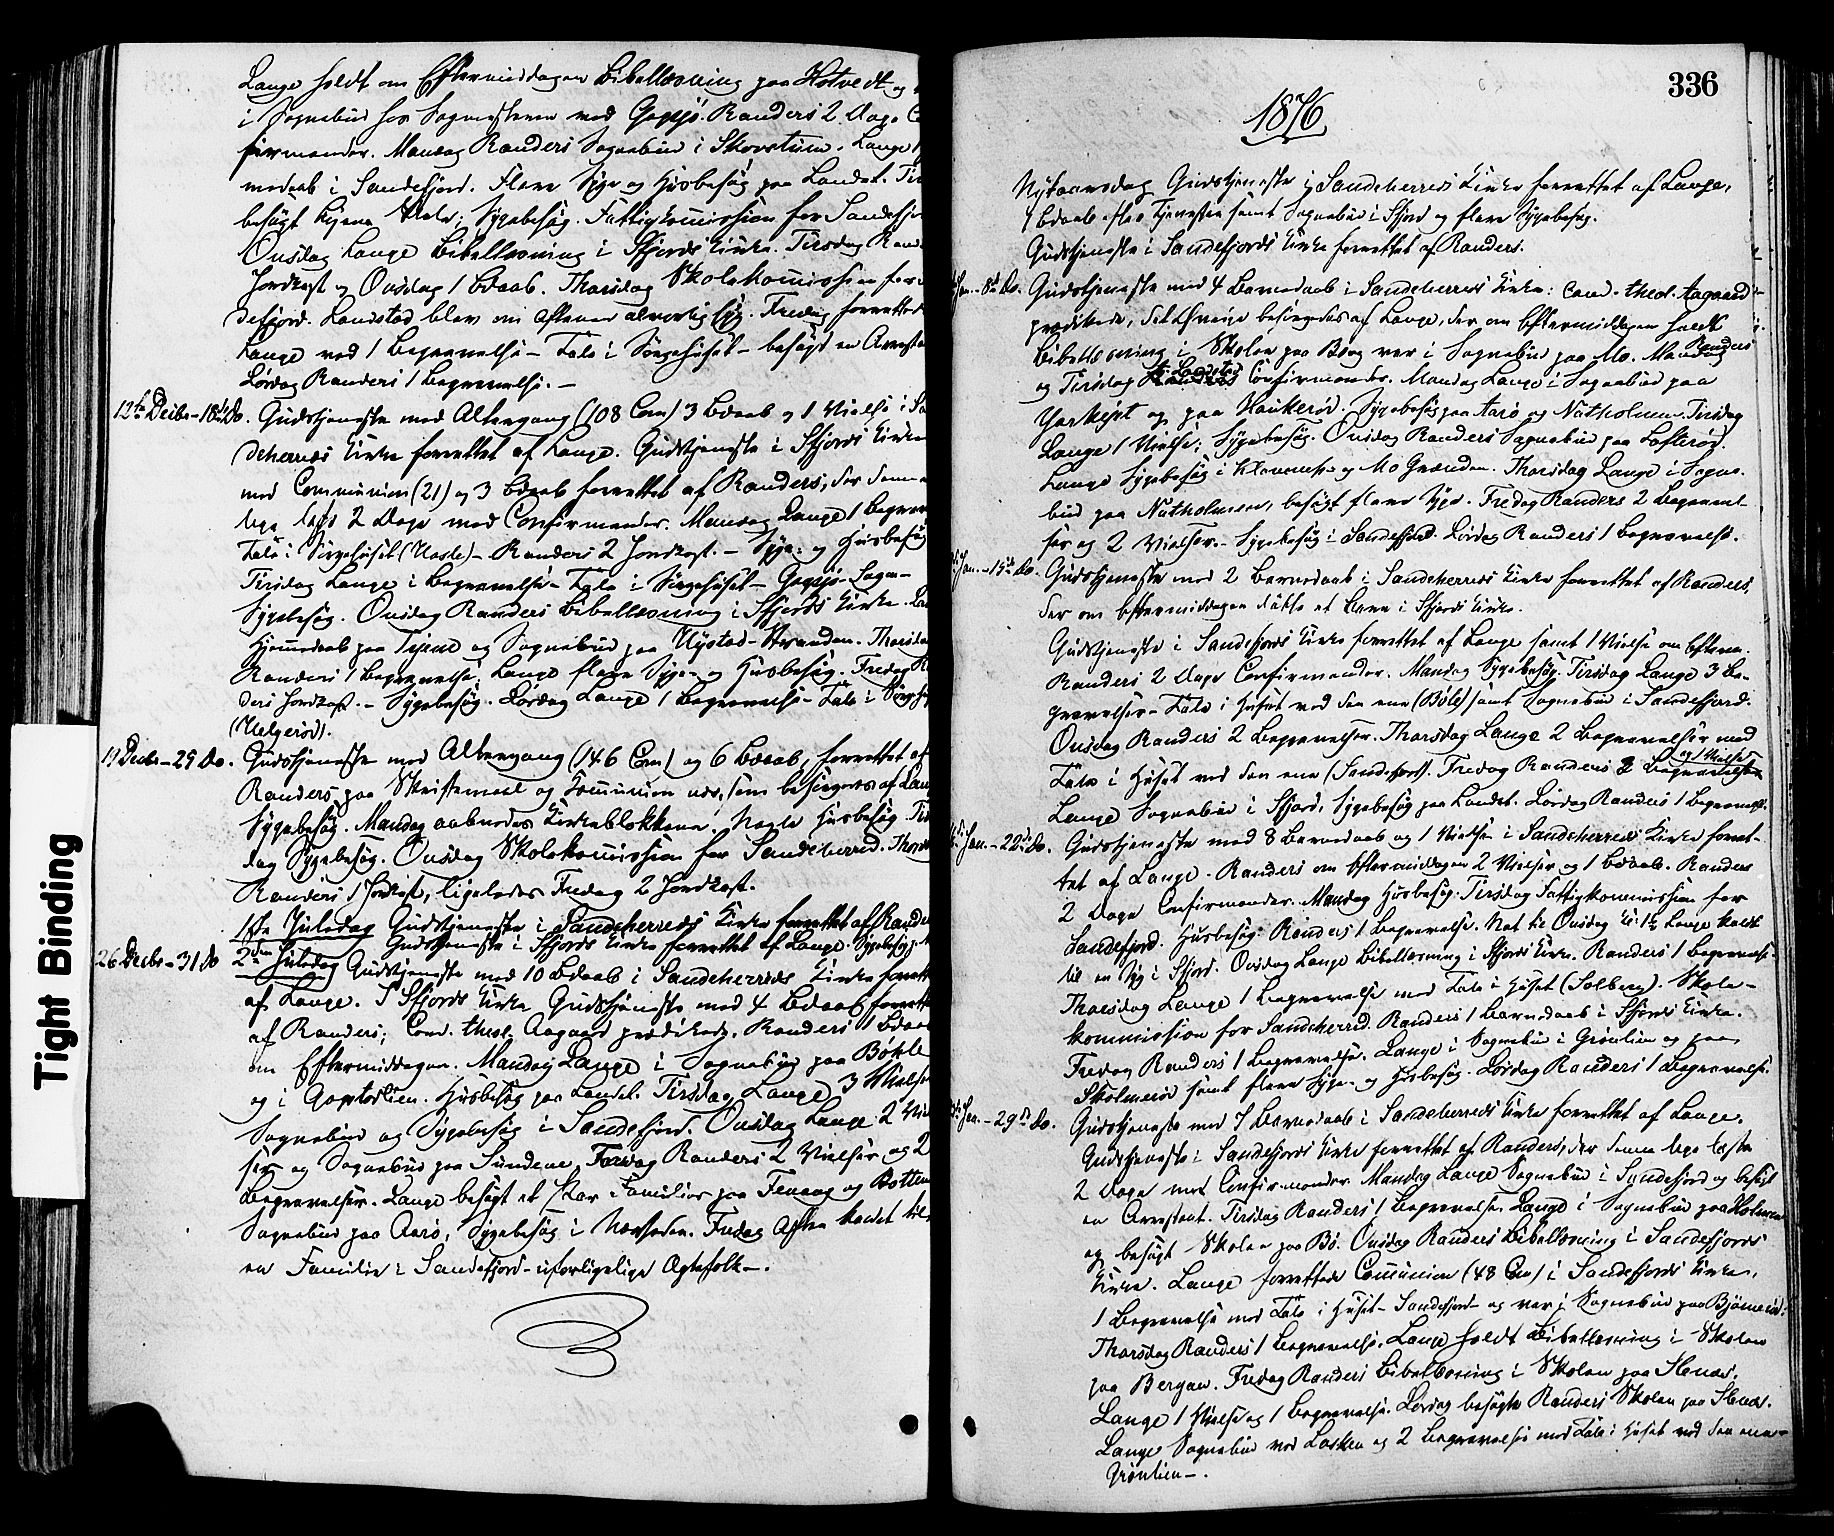 Lange holdt om Eftermiddagen Bibellæsning paa Hotvedt og
i Sognebud hos Sognepresten ved Gogsjø. Randers 2 Dage
firmander. Mandag Randers Sognebud i Skovstuen. Lange
medaab i Sandefjord. Flere Syge og Husbesøg paa Landet.
besøgt Sygebesøg. Fattigkommission for Sandefj
Onsdag Lange Bibellæsning i Sfjords Kirke. Tirsdag Rand
Jordkast og Onsdag 1 Bdaab. Thorsdag Skolekommission for
defjord. Landstad blev om Aftenen alvorlig syg. Fredag forrettede
Lange ved 1 Begravelse – Tale i Sørgehuset – besøgt en Arrestan
Lørdag Randers 1 Begravelse. –
12te Decbr – 18de Do. Gudstjeneste med Altergang (108 Com) 3 Bdaab og 1 Vielse i Sa
deherreds Kirke forrettet af Lange. Gudstjeneste i Sfjords Kirke
med Communion (21) og 3 Bdaab forrettet af Randers, der denne
læste 2 Dage med Confirmander. Mandag Lange 1 Begrav
Tale i Sørgehuset (Hasle) – Randers 2 Jordkast. – Syge- og Husbesøg
Tirsdag Lange i Begravelse – Tale i Sørgehuset – Gogsjø – Sogn –
Sygebesøg. Onsdag Randers Bibellæsning i Sfjords Kirke. La
Hjemmedaab paa og Sognebud paa Nystad – Stranden. Thorsda
Randers 1 Begravelse. Lange flere Syge- og Husbesøg. Fredag R
ders Jordkast. – Sygebesøg. Lørdag Lange 1 Begravelse – Tale i Sørgeh
(Helgerød).
19 Decbr – 25 Do. Gudstjeneste med Altergang (146 Com) og 6 Bdaab, forrettet af
Randers, paa Skriftemaal og Communion nær, som besørgedes af Lan
Sygebesøg. Mandag aabnedes Kirkeblokkene. Husbesøg. Tir
dag Sygebesøg. Onsdag Skolekommission for Sandeherred. Thorsd
Randers 1 Jordkast, ligeledes Fredag 2 Jordkast.
1ste Juledag Gudstjeneste i Sandeherreds Kirke forrettet af Rander
Gudstjeneste i Sfjords Kirke forrettet af Lange. Sygebesøg.
26 Decbr – 31 Do 2den Juledag Gudstjeneste med 10 Bdaab i Sandeherreds Kirke forrett
af Lange. I Sfjords Kirke Gudstjeneste med 4 Bdaab forrette
af Randers; Cand. theol. Aagaard prædikede. Randers 1 Bdaab
om Eftermiddagen. Mandag Lange i Sognebud paa Bøkle
og i Gogstadlien. Husbesøg paa Landet. Tirsdag Lange 3 Vielse
Sognebud og Sygebesøg i Sandefjord. Onsdag Lange 2 Viel
ser og Sognebud paa Sundene. Torsdag Randers 2 Vielser og 2
Begravelser. Lange besøgt et Par Familier paa og
Sognebud paa Aarø, Sygebesøg i. Fredag Aften kaldet til
en Familie i Sandefjord – uforligelige Ægtefolk –.
336
1876
Nytaarsdag Gudstjeneste i Sandeherreds Kirke forrettet af Lange,
1 Bdaab efter Tjenesten samt Sognebud i Sfjord og flere Sygebesøg.
Gudstjeneste i Sandefjords Kirke forrettet af Randers.
Jan. – 8de Do. Gudstjeneste med 4 Barnedaab i Sandeherreds Kirke: Cand. theol. Aagaard
prædikede, det Øvrige besørgedes af Lange, der om Eftermiddagen holdt
Bibellæsning i Skolen paa Bøeg var i Sognebud paa Mo. Mandag Randers
og Tirsdag Landstad Confirmander. Mandag Lange i Sognebud paa
og paa Haukerød. Sygebesøg paa Aarø og Natholmen. Tirsdag
Lange 1 Vielse; Sygebesøg. Onsdag Randers Sognebud paa Lofterød.
Lange Sygebesøg i og Mo Grænden. Thorsdag Lange i Sogne-
bud paa Natholmen, besøgt flere Syge. Fredag Randers 2 Begravel-
ser og 2 Vielser. – Sygebesøg i Sandefjord. Lørdag Randers 1 Begravelse.
Jan. – 15de Do. Gudstjeneste med 2 Barnedaab i Sandeherreds Kirke forrettet af Randers,
der om Eftermiddagen døbte et Barn i Sfjords Kirke.
Gudstjeneste i Sandefjords Kirke forrettet af Lange samt 1 Vielse om Efterm.
Randers 2 Dage Confirmander. Mandag Sygebesøg. Tirsdag Lange 3 Be-
gravelser – Tale i Huset ved den ene (Bøle) samt Sognebud i Sandefjord.
Onsdag Randers 2 Begravelser. Thorsdag Lange 2 Begravelser med
Tale i Huset ved den ene (Sandefjord). Fredag Randers 2 Begravelser og 1 Vielse
Lange Sognebud i Sfjord, Sygebesøg paa Landet. Lørdag Randers 1 Begravelse.
Jan. – 22de Do. Gudstjeneste med 8 Barnedaab og 1 Vielse i Sandeherreds Kirke forret-
tet af Lange. Randers om Eftermiddagen 2 Vielser og 1 Bdaab. Randers
2 Dage Confirmander. Mandag Husbesøg. Tirsdag Fattigkommission for
Sandefjord. Husbesøg. Randers 1 Begravelse. Nat til Onsdag Kl. 1½ Lange kaldt
til en Syg i Sfjord. Onsdag Lange Bibellæsning i Sfjords Kirke. Randers 1 Begravelse.
Thorsdag Lange 1 Begravelse med Tale i Huset (Solberg). Skole-
kommission for Sandeherred. Randers 1 Barnedaab i Sfjords Kirke.
Fredag Randers 1 Begravelse. Lange i Sognebud i Grønlien og paa
samt flere Syge- og Husbesøg. Lørdag Randers 1 Begravelse.
Jan. – 29de Do. Gudstjeneste med 7 Barnedaab i Sandeherreds Kirke forrettet af Lange.
Gudstjeneste i Sandefjords Kirke forrettet af Randers, der denne Uge læste
2 Dage med Confirmander. Mandag Lange Sognebud i Sandefjord og besøgt
en Arrestant. Tirsdag Randers 1 Begravelse. Lange i Sognebud paa Holmen
og besøgt Skolen paa Bø. Onsdag Randers Bibellæsning i Sandefjords
Kirke. Lange forrettede Communion (48 Com) i Sandefjords Kirke,
1 Begravelse med Tale i Huset – Sandefjord – og var i Sognebud paa Bjørnerød.
Thorsdag Randers 1 Begravelse. Lange holdt Bibellæsning i Skolen
paa Bergan. Fredag Randers Bibellæsning i Skolen paa Stenås.
Lange 1 Vielse og 1 Begravelse. Lørdag besøgte Randers Skolen paa
Lange Sognebud ved og 2 Begravelser med Tale i Huset ved den ene –
Grønlien –.
Tight Binding